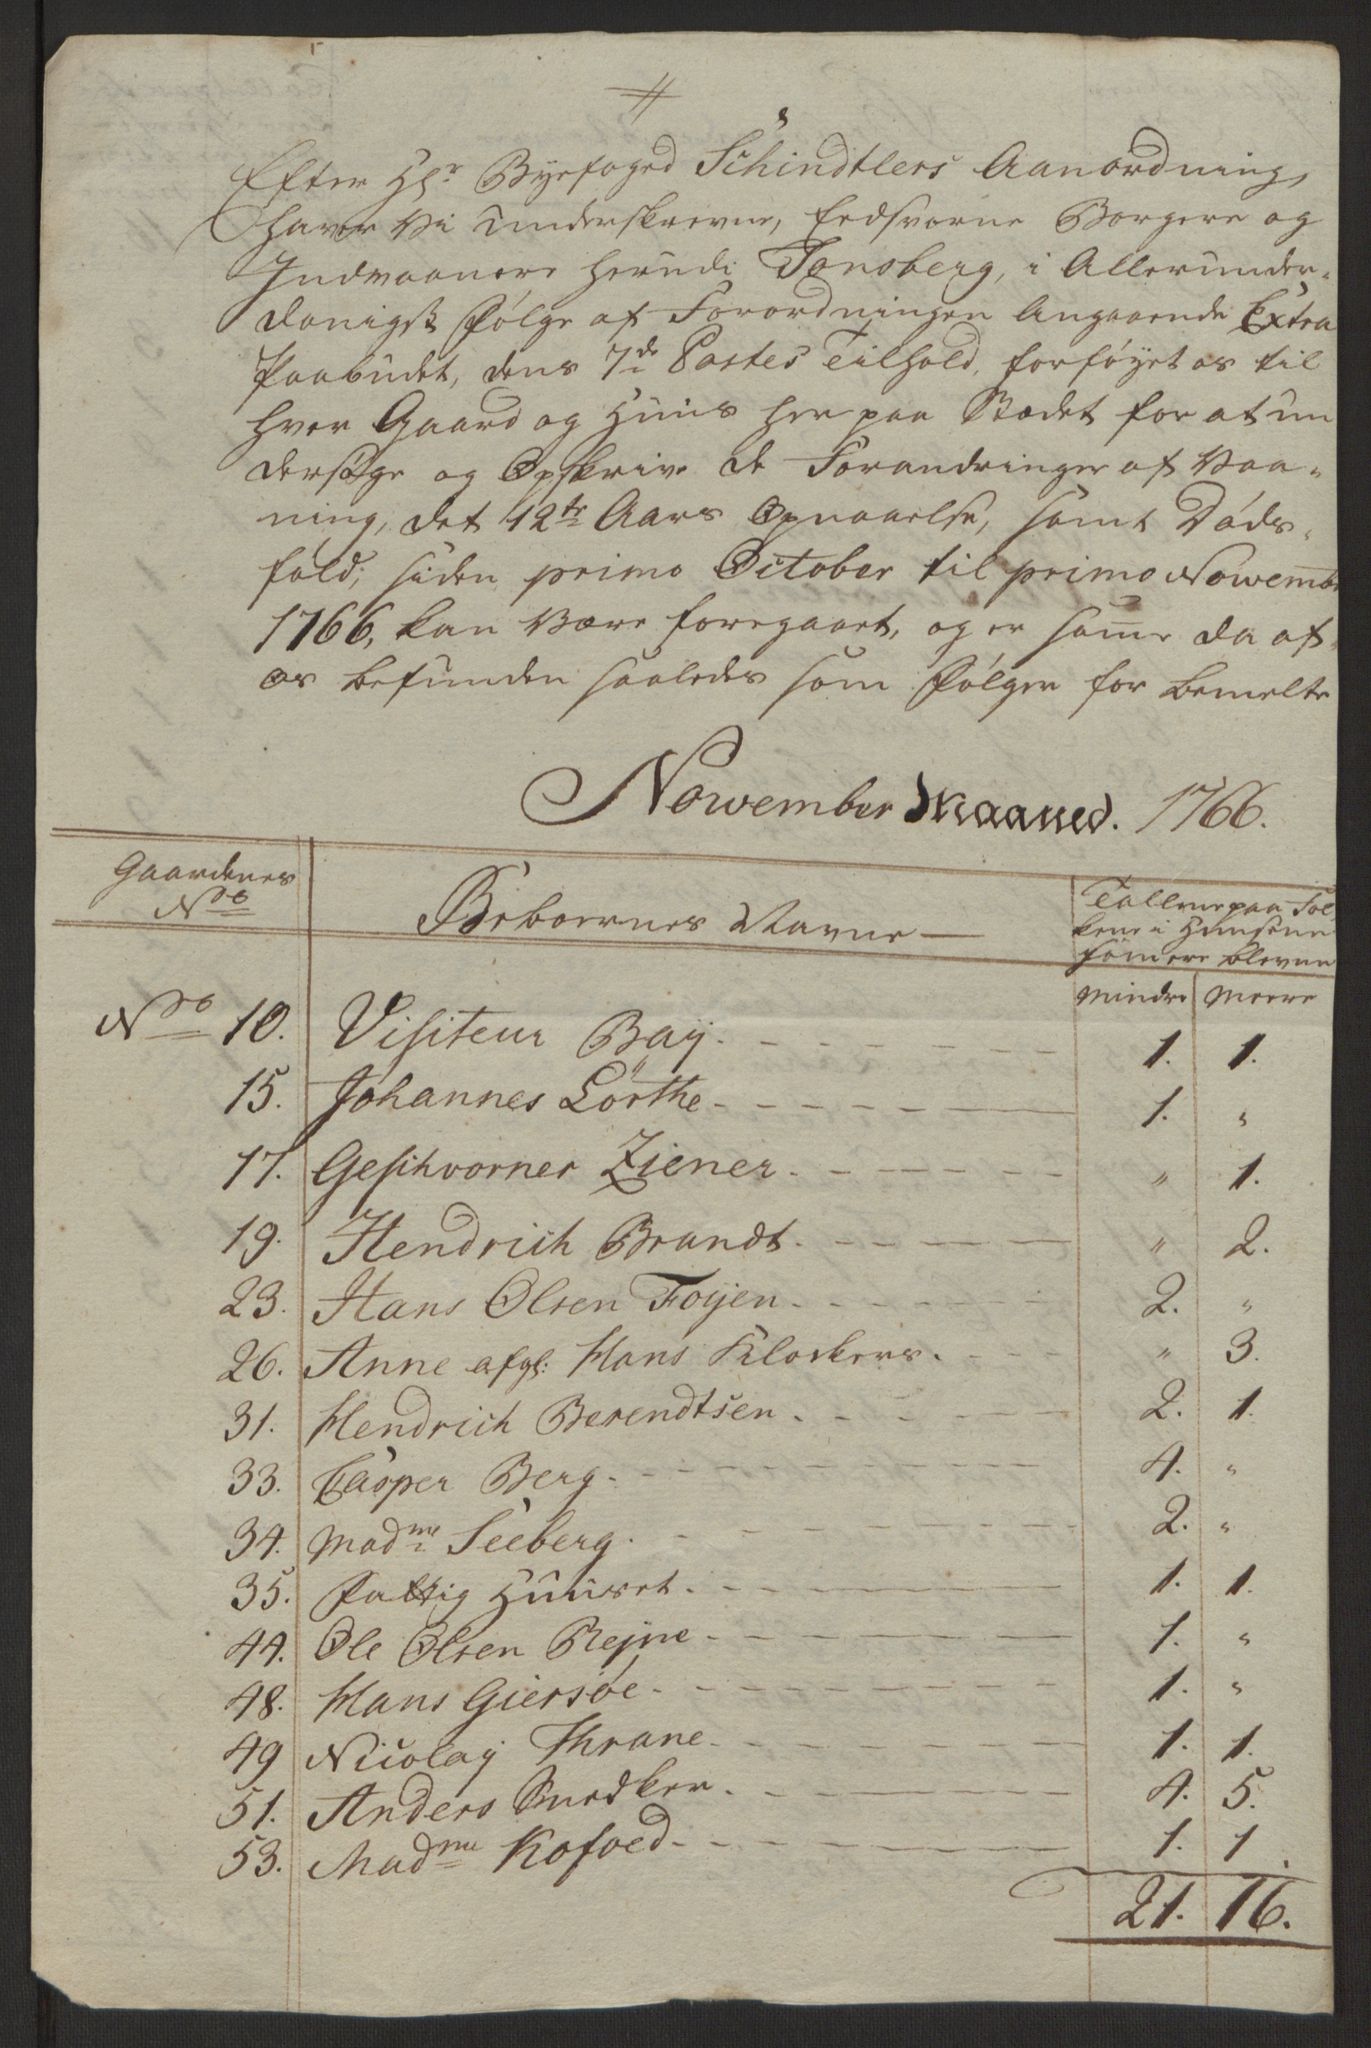 Efter Hr. Byefoged Schindtlers Aanordning,
haver Vi Underskrevne, Eedsvorne Borgere og
Indvaanere herudi Tønsberg, i Allerunder-
danigst Følge af Forordningen Angaaende Extra
Paabudet, dens 7de Postes Tilhold, forføyet os til
hver Gaard og Huus her paa Stædet for at un
dersøge og Opskrive de Forandringer af Vaa-
ning, det 12te Aars Opnaaelse, samt Døds-
fald, siden primo October til primo Nowembr
1766, kan være foregaaet, og er samme da af
os befunden saaledes som Følger for bemelte
Nowember Maaned. 1766.
Gaardenes No
Beboernes Navne
Tallene paa Fol
kene i Huusene
som ere blevne
Mindre Meere
No 10. Visiteur Baÿ. 1. 1.
15. Johannes Lörthe 1. "
17. Geschvorner Ziener. " 1.
19. Hendrich Brandt. " 2.
23. Hans Olsen Foÿen. 2. "
26. Anne afgl: Hans Klockers. " 3.
31. Hendrich Berendtsen. 2. 1.
33. Casper Berg. 4. "
34. Madme Seeberg. 2. "
35. Fattig Huuset. 1. 1.
44. Ole Olsen Rejne 1. "
48. Hans Giersøe 1. "
49 Nicolaÿ Thrane 1. 1.
51. Anders Snedker. 4. 5.
53. Madme Kofoed 1. 1.
21. 16.